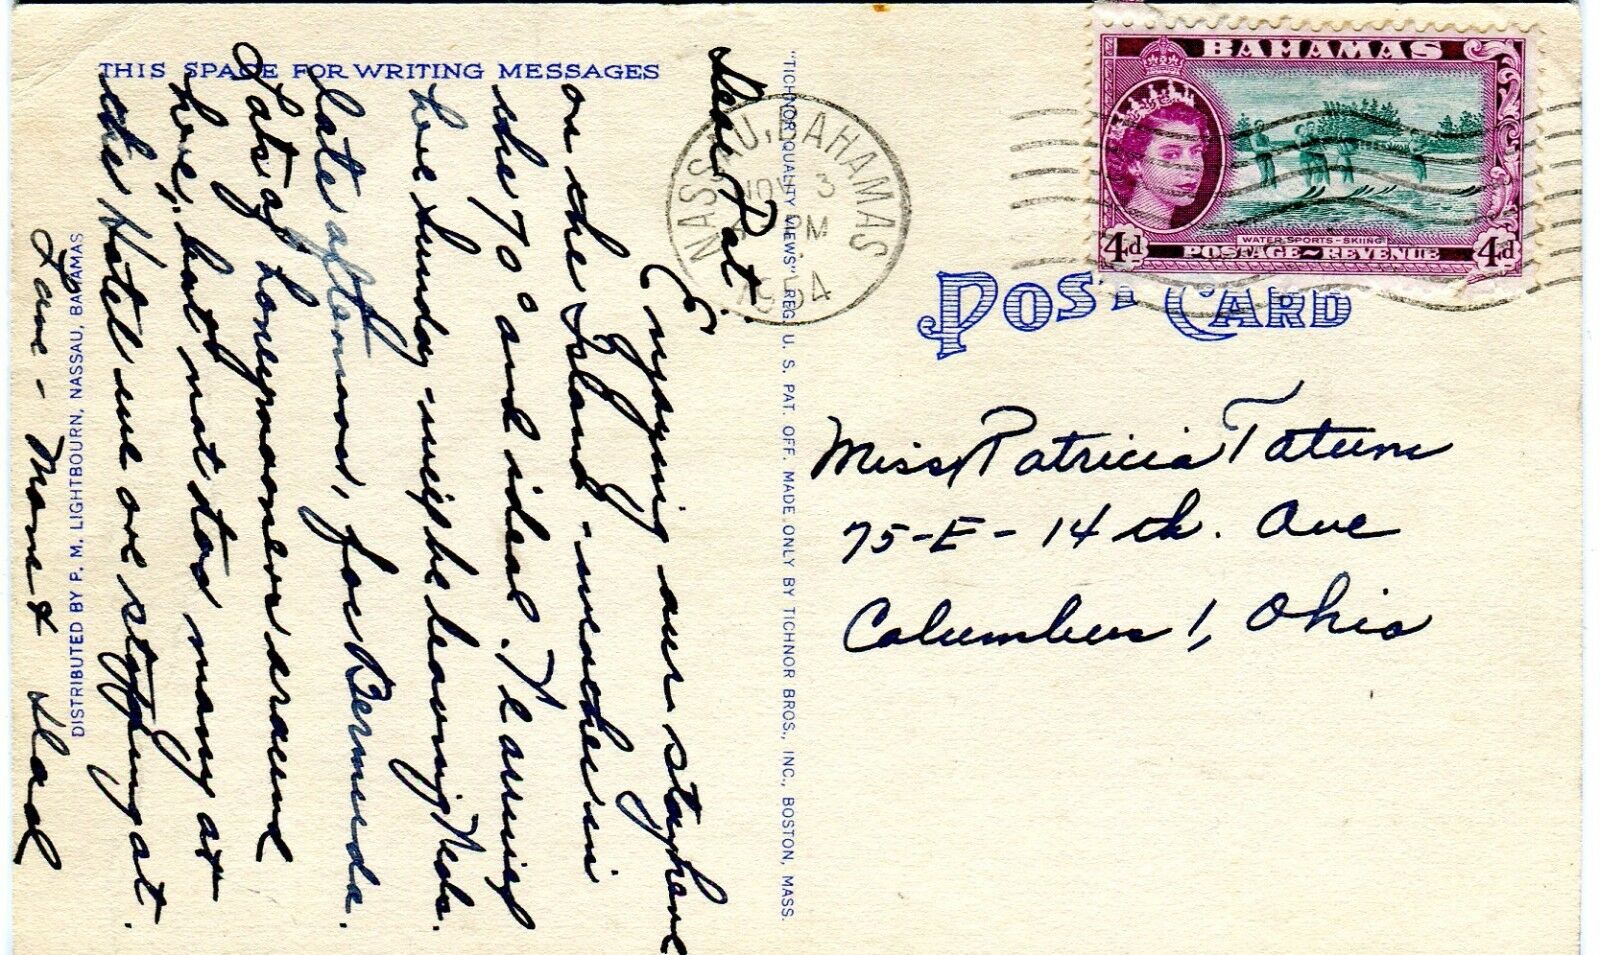 THIS SPACE FOR WRITING MESSAGES
Dear Pat:
Enjoying our stay here
on the Island - weather in
the 70° and ideal. We arrived
here Sunday - will be leaving Weds.
late afternoon, for Bermuda.
Lots of honeymooners around
here, but not too many at
the Hotel we are stopping at.
Love - Mom & Dad
DISTRIBUTED BY P. M. LIGHTBOURN, NASSAU, BAHAMAS
"TICHNOR QUALITY VIEWS" REG. U. S. PAT. OFF. MADE ONLY BY TICHNOR BROS., INC., BOSTON, MASS.
NASSAU, BAHAMAS
NOV 3
PM
1954
BAHAMAS
WATER SPORTS - SKIING
4d POSTAGE ~ REVENUE 4d
POST CARD
Miss Patricia Tatum
75-E-14th. Ave
Columbus 1, Ohio